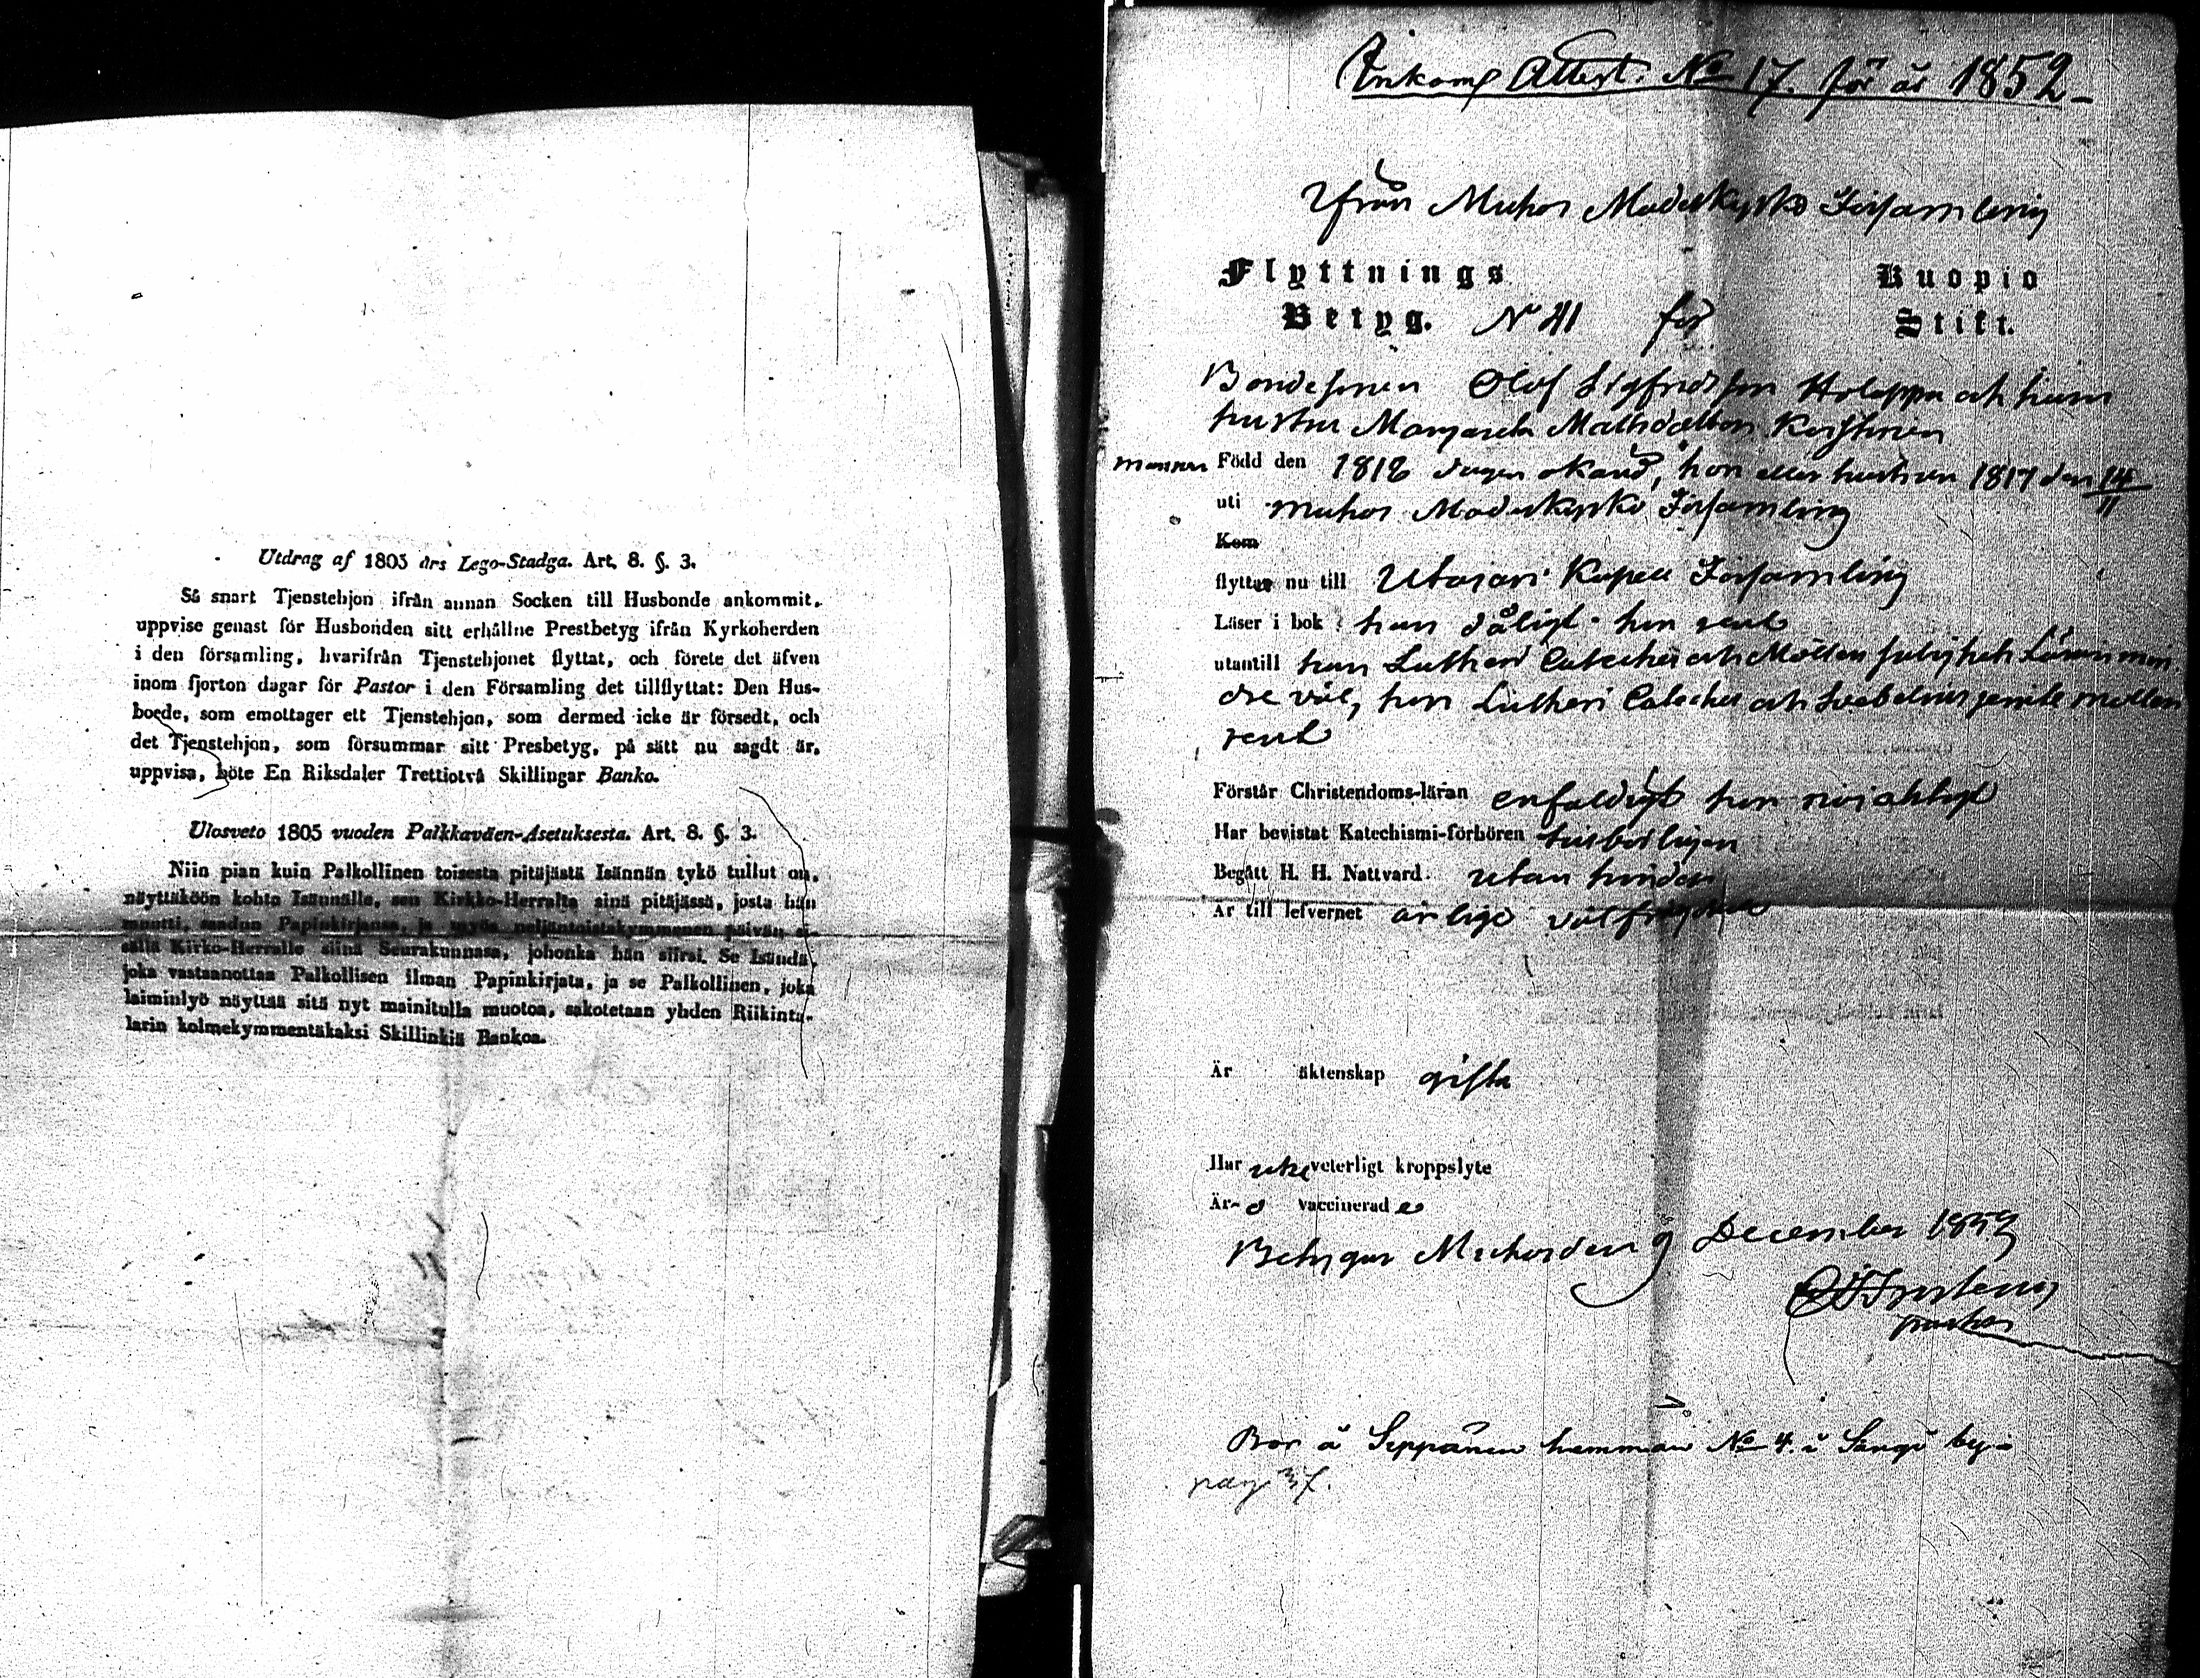 Utdrag af 1805 års Lego-Stadga. Art. 8. §. 3.
Så snart Tjenstehjon ifrån annan Socken till Husbonde ankommit,
uppvise genast för Husbonden sitt erhållne Prestbetyg ifrån Kyrkoherden
i den församling, hvarifrån Tjenstehjonet flyttat, och förete det äfven
inom fjorton dagar för Pastor i den Församling det tillflyttat: Den Hus-
boede, som emottager ett Tjenstehjon, som dermed icke är försedt, och
det Tjenstehjon, som försummar sitt Presbetyg, på sätt nu sagdt är,
uppvisa, böte En Riksdaler Trettiotvå Skillingar Banko.
Ulosveto 1805 vuoden Palkkaväen-Asetuksesta. Art. 8. §. 3.
Niin pian kuin Palkollinen toisesta pitäjästä Isännän tykö tullut on,
näyttäköön kohta Isännälle, sen Kirkko-Herralta sinä pitäjässä, josta hän
muutti, saadun Papinkirjansa, ja myös neljäntoistakymmenen päivän si-
sällä Kirko-Herralle siinä Seurakunnasa, johonka hän siirsi. Se Isändä,
joka vastaanottaa Palkollisen ilman Papinkirjata, ja se Palkollinen, joka
laiminlyö näyttää sitä nyt mainitulla muotoa, sakotetaan yhden Riikinta-
larin kolmekymmentäkaksi Skillinkiä Bankoa.
Inkomg Attest. No 17. för år 1852
Ifrån Muhos Moderkyrko Församling
Flyttnings Kuopio
Betyg. N 41 för Stift.
Bondesonen Olof Sigfridsson Holappa och hans
hustru Margareta Mattsdotter Kestinen
mannen Född den 1818 dagen okänd, hon eller hustrun 1817 den 14/11
uti Muhos Moderkyrko Församling
Kom
flyttar nu till Utajärvi Kapell Församling
Läser i bok han dåligt hon rent
utantill han Lutheri Cateches och
dre väl, hon Lutheri Cateches och Svebelius
rent
Förstår Christendoms-läran enfaldigt hon nöjaktigt
Har bevistat Katechismi-förhören
Begått H. H. Nattvard. utan hinder
Är till lefvernet ärlige välfrejdade
Är äktenskap gifta
Har icke veterligt kroppslyte
Är o vaccinerade
Betygar Muhos den 9 December 1852
pastor
Bor å Seppänen hemman No 4 i Sangi by
pag 37.